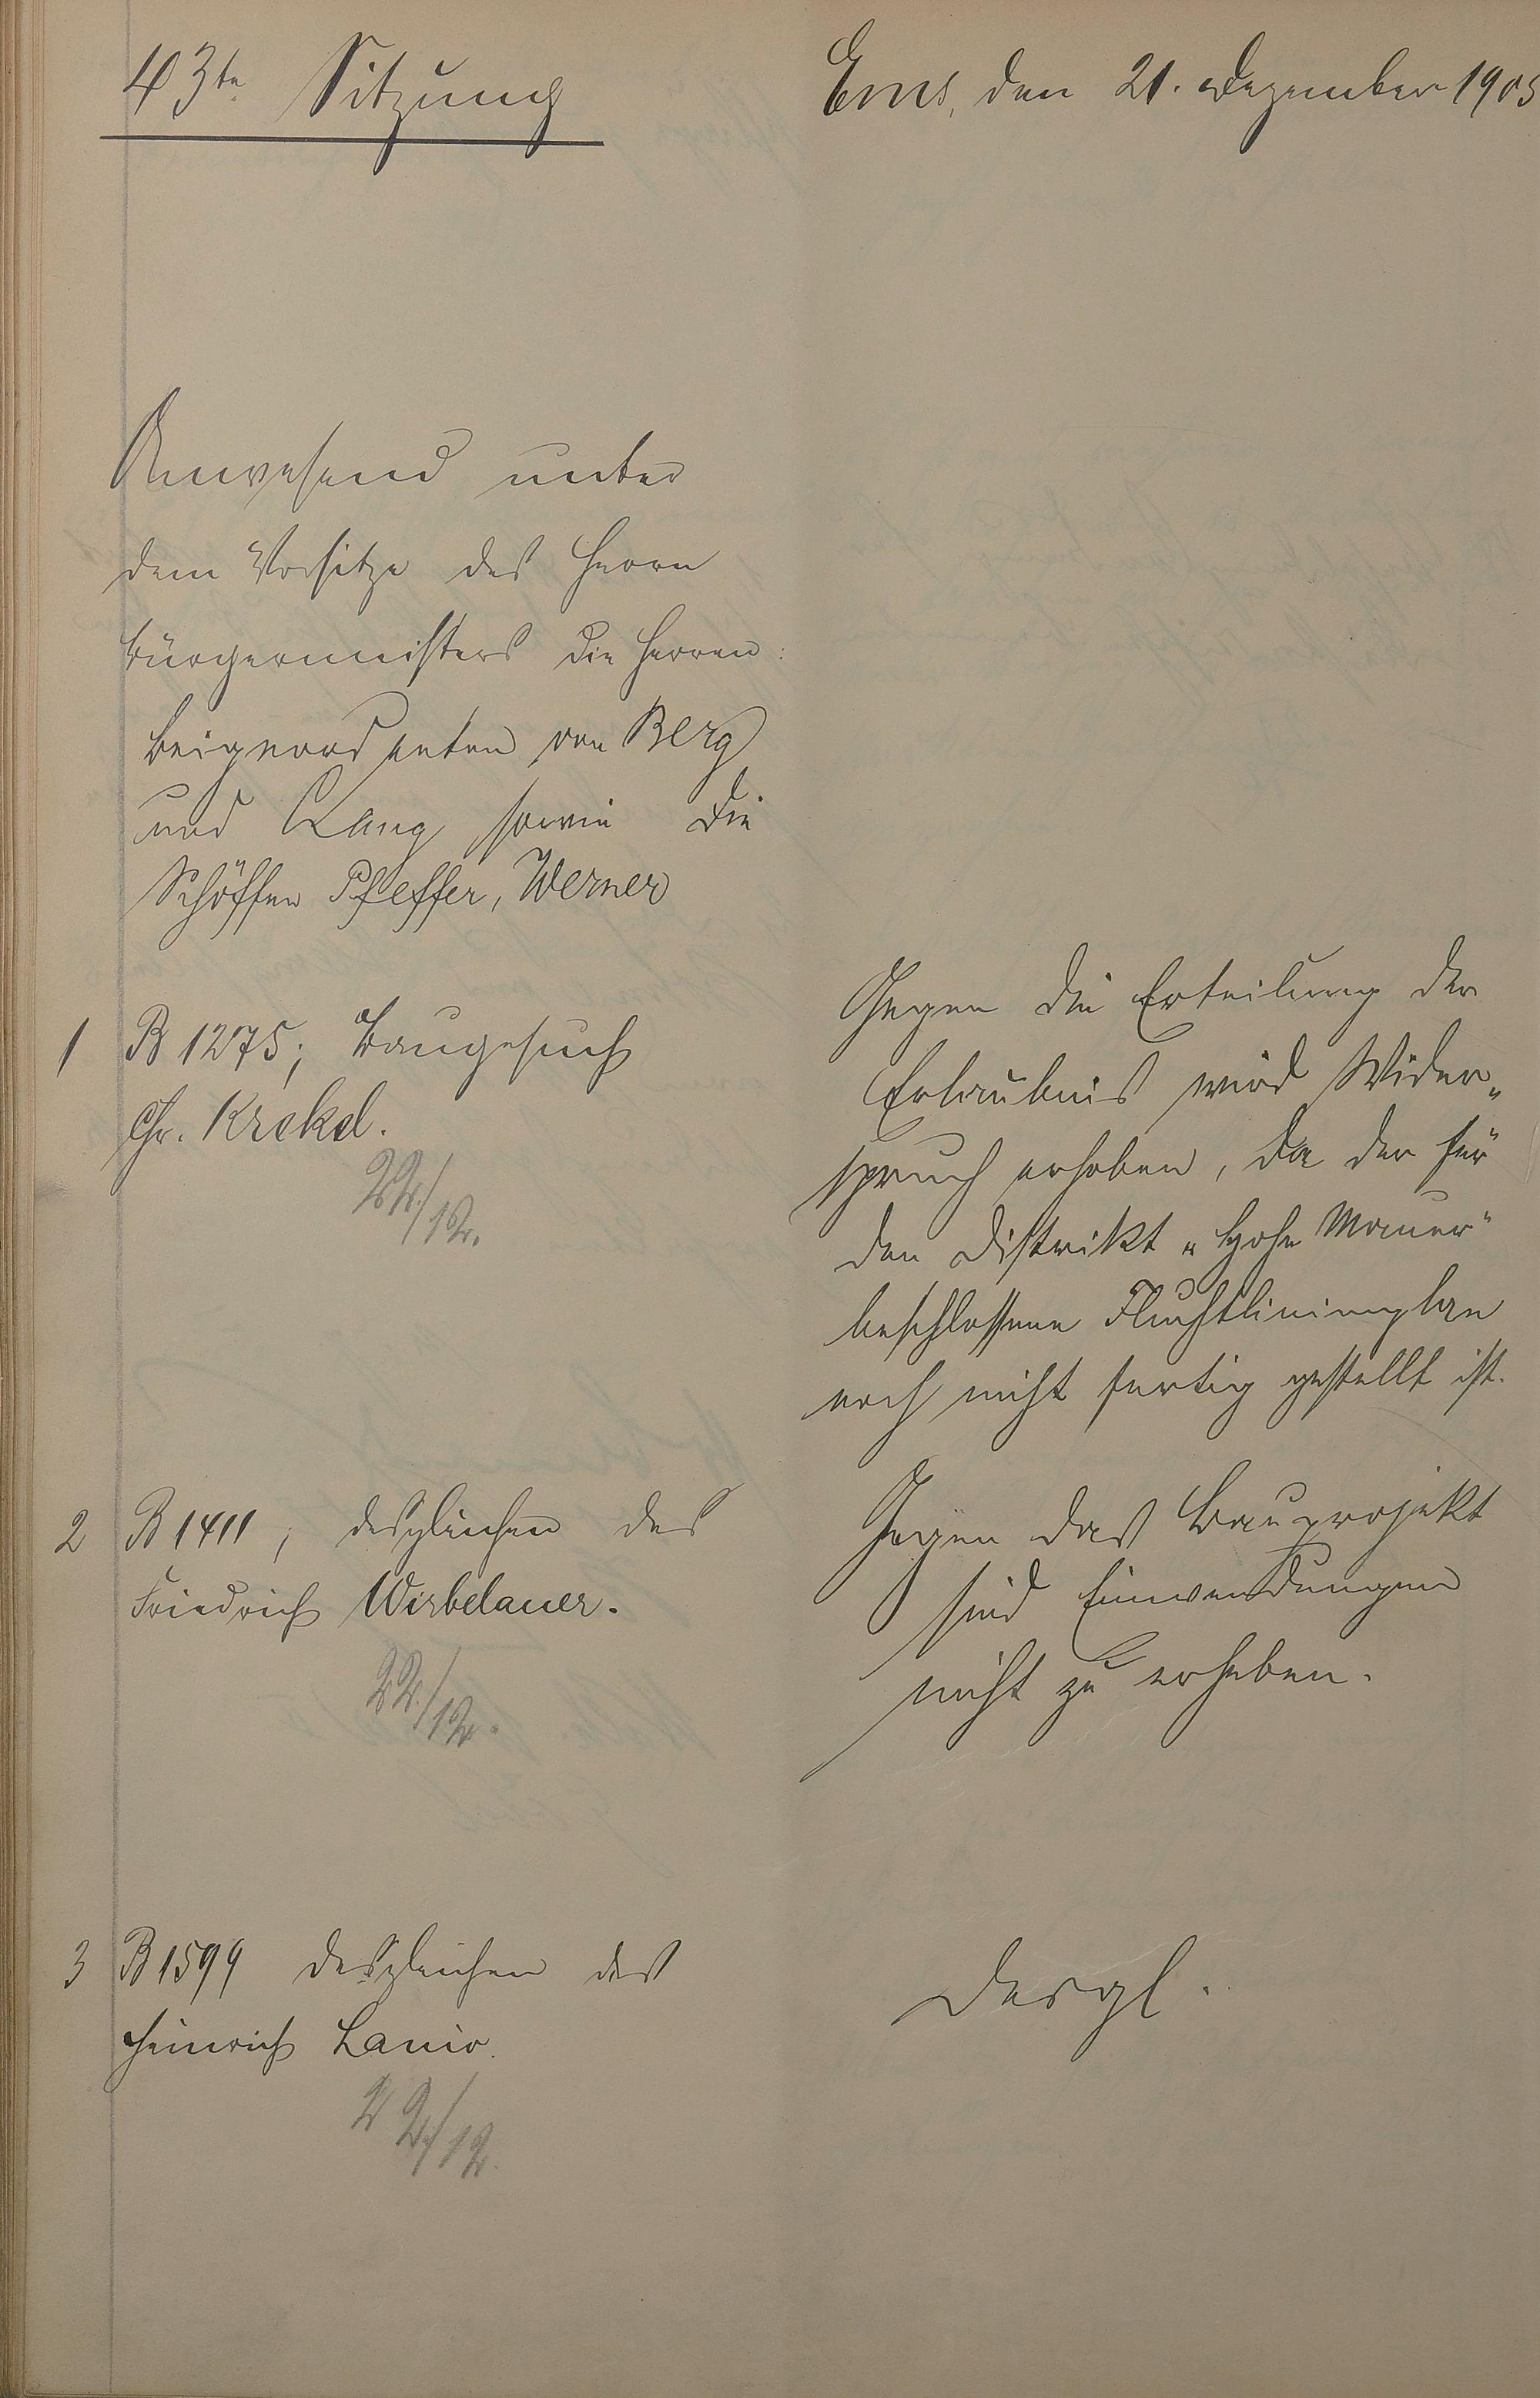 43te Sitzung
Ems, den 21. Dezember 1905
Anwesend unter
dem Vorsitze des Herrn
Bürgermeisters die Herren:
Beigeordneten von Berg
und Lang sowie die
Schöffen Pfeffer, Werner
1 B 1275; Baugesuch
Chr. Krekel.
22./12.
Gegen die Erteilung der
Erlaubnis wird Wider„
spruch erhoben, da der für
den Distrikt „Hohe Mauer"
beschlossene Fluchtlinienplan
noch nicht fertig gestellt ist.
2 B 1411; desgleichen des
Friedrich Wirbelauer.
22./12.
Gegen das Bauprojekt
sind Einwendungen
nicht zu erheben.
3 B 1599 desgleichen des
Heinrich Lanio.
22/12.
Desgl.